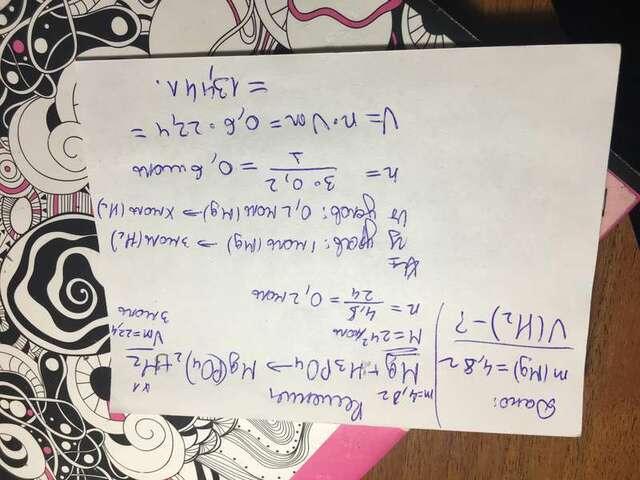 Дано:
m(Mg)=4,8г
V(H2)-?
Решение
m=4,8г x л
Mg+H3PO4→Mg(PO4)2+H2
M=24г/моль Vm=22,4
n=4,8/24=0,2моль 3моль
Из урав: 1моль(Mg)→3моль(H2)
Из услов: 0,2моль(Mg)→xмоль(H2)
n=3·0,2/1=0,6моль
V=n·Vm=0,6·22,4=
=13,44л.